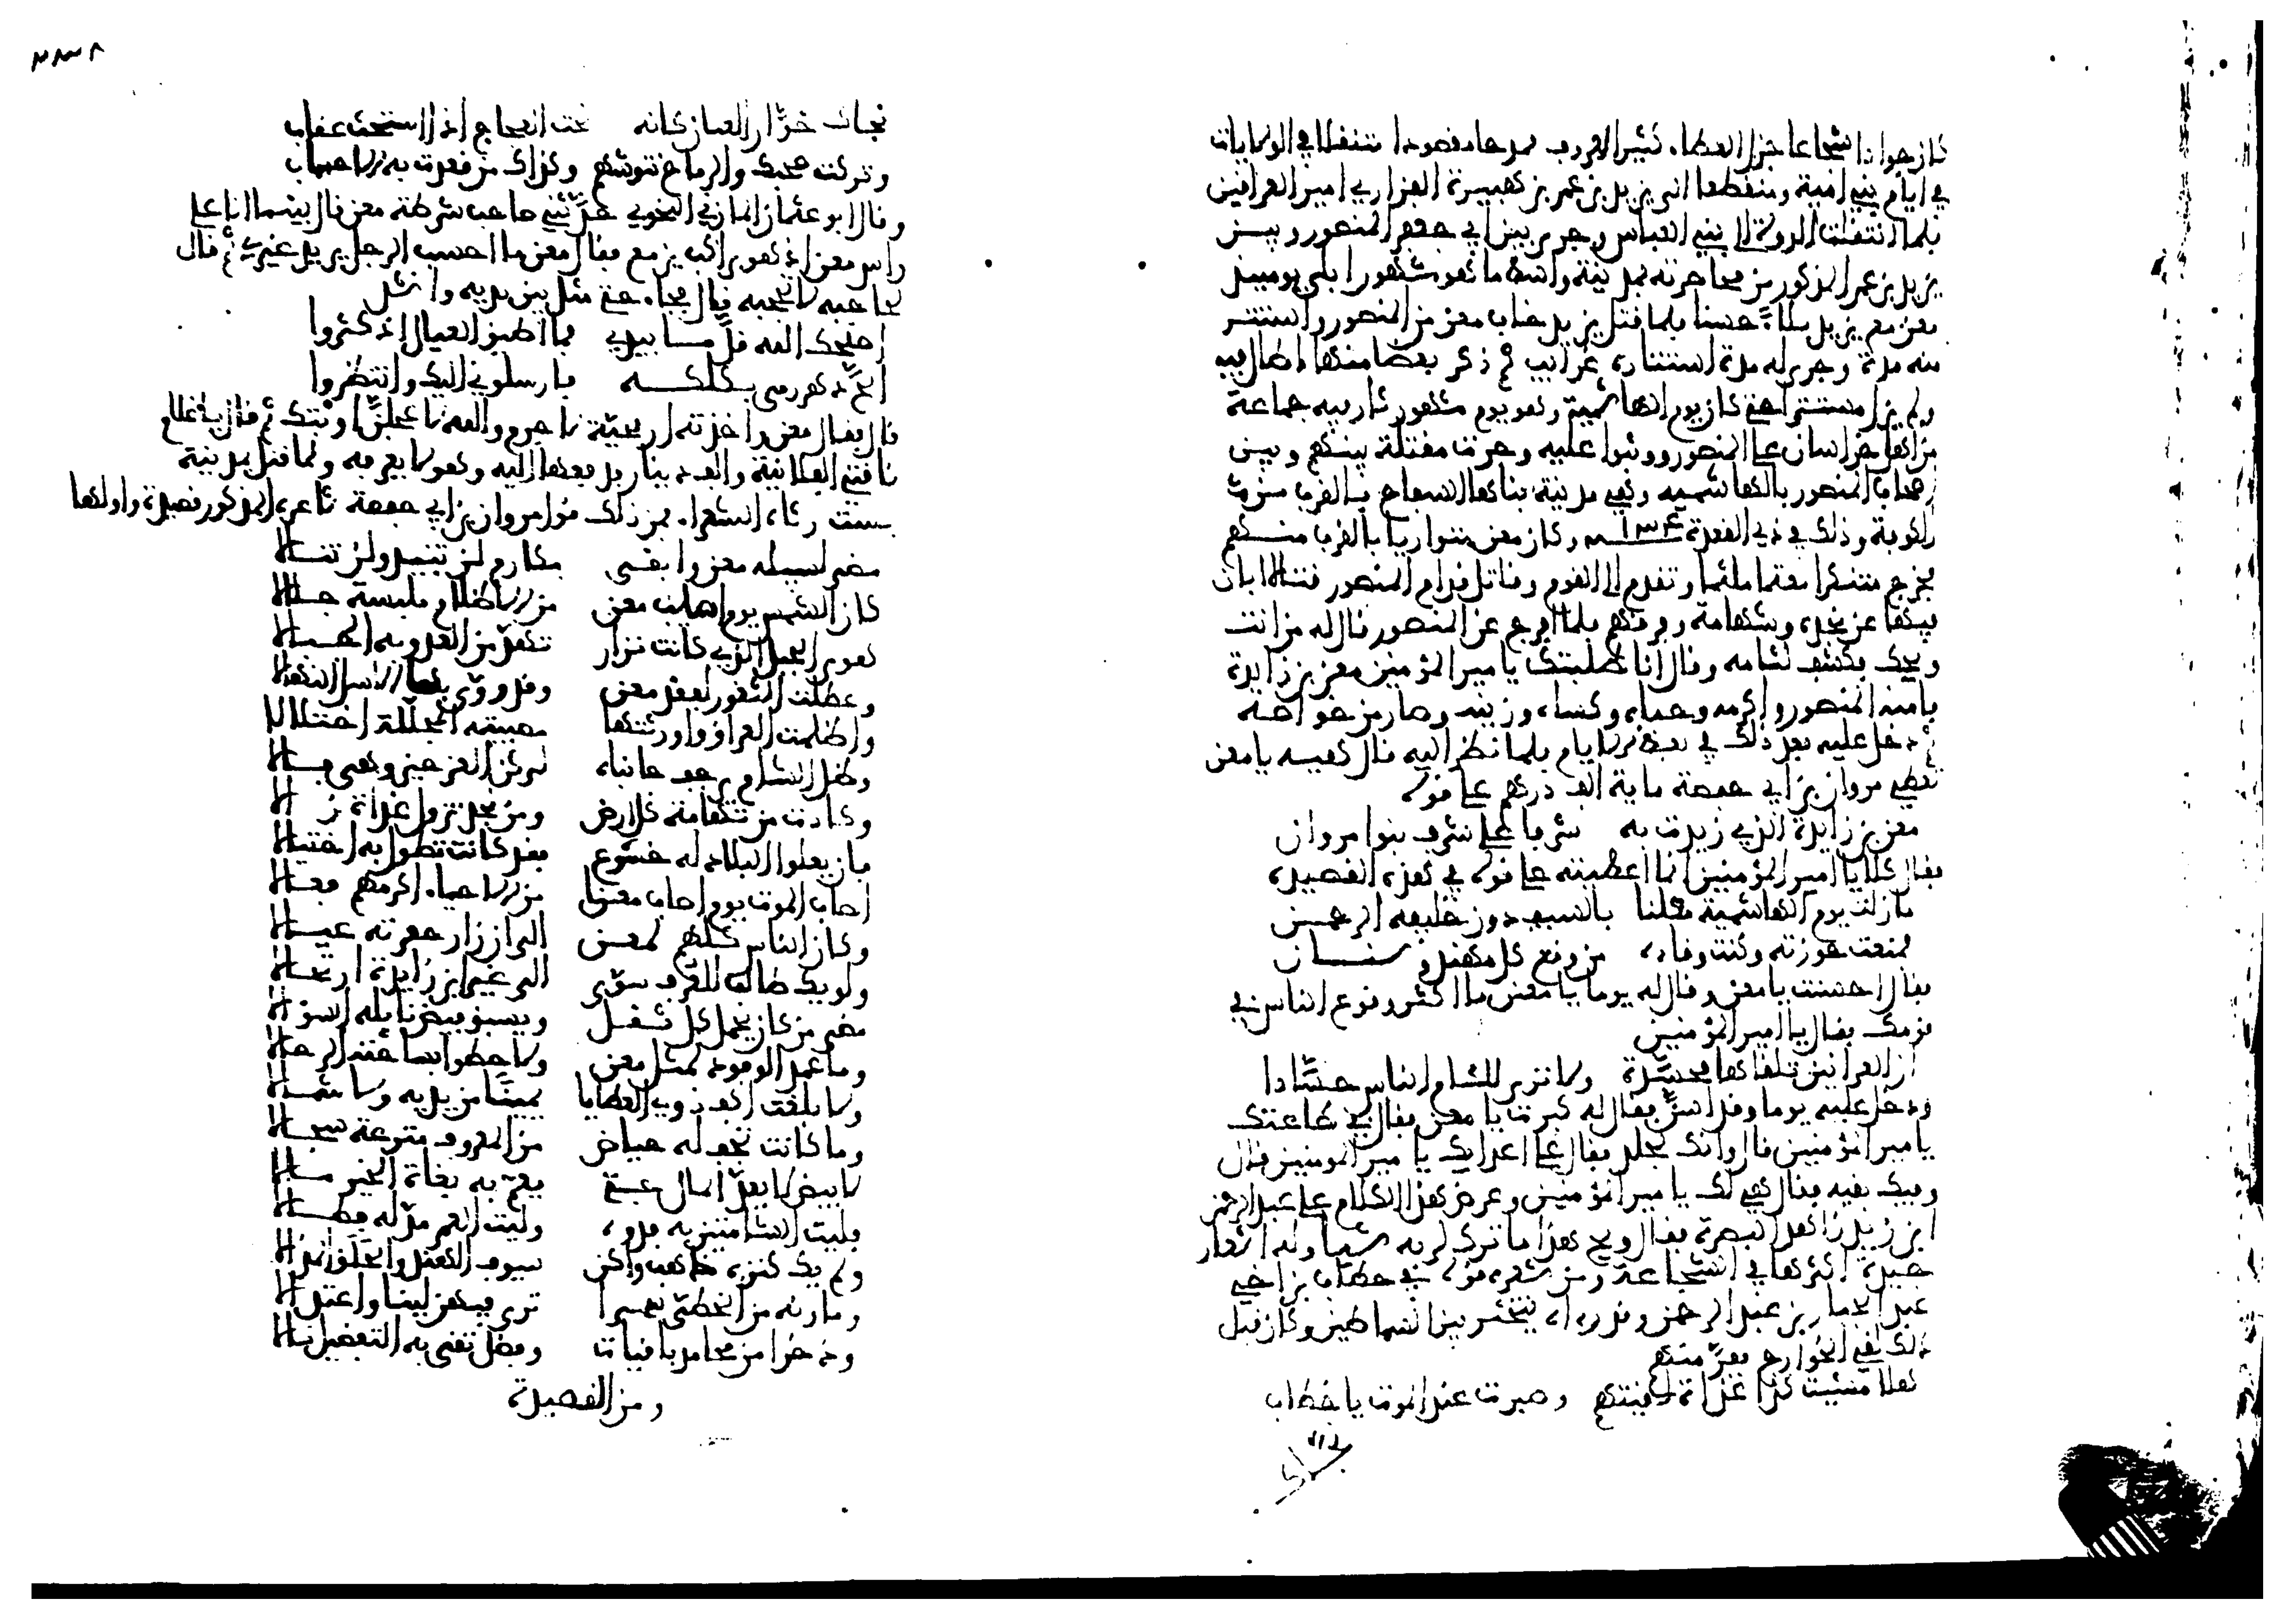 كان جوادا شجاعا جزل العطاء كثير المعروف ممدحا مقصودا متنقلا في الولايات
في أيام بني أمية ومنقطعا الى يزيد بن عمر بن هبيرة الفزاري أمير العراقين
فلما انتقلت الدولة الى بني العباس وجرى بين أبي جعفر المنصور وبين
يزيد بن عمر المذكور من محاصرته بمدينة واسط ما هو مشهور ابلى يومئذ
معن مع يزيد بلاء حسنا فلما قتل يزيد خاف معن من المنصور واستتر
منه مدة وجرى له مدة استتاره غرائب ثم ذكر بعضا منها اطال فيه
ولم يزل مستترا حتى كان يوم الهاشمية وهو يوم مشهور ثار فيه جماعة
من اهل خراسان على المنصور ووثبوا عليه وجرت مقتلة بينهم وبين
اصحاب المنصور بالهاشمية وهي مدينة بناها السفاح بالقرب من
الكوفة وذلك في ذي القعدة وكان معن متواريا بالقرب منهم
فخرج متنكرا معتما ملثما وتقدم الى القوم وقاتل قدام المنصور قتالا ابان
فيه عن نجدة وشهامة وفرقهم فلما افرج عن المنصور قال له من انت
ويحك فكشف لثامه وقال أنا طلبتك يا امير المؤمنين معن بن زايدة
فأمنه المنصور واكرمه وحباه وكساه وزينه وصار من خواصه
ثم دخل عليه بعد ذلك في بعض الايام فلما نظر اليه قال هيه يا معن
تعطي مروان بن أبي حفصة ماية الف درهم على قوله
معن بن زايدة الذي زيدت به شرفا على شرف بنوا مروان
فقال كلا يا امير المؤمنين انما اعطيته على قوله في هذه القصيدة
ما زلت يوم الهاشمية معلنا بالسيف دون خليفة الرحمن
فمنعت حوزته وكنت وقاءه من وقع كل مهند وسنان
فقال احسنت يا معن وقال له يوما يا معن ما اكثر وقوع الناس في
قومك فقال يا امير المؤمنين
ان العرانين تلقاها محسدة ولا ترى للئام الناس حسادا
ودخل عليه يوما وقد اسن فقال له كبرت يا معن فقال في طاعتك
يا امير المؤمنين قال وانك لجلد فقال على اعدائك يا امير المومنين قال
وفيك بقية فقال هي لك يا امير المؤمنين وعرض هذا الكلام على عبد الرحمن
ابن زيد زاهد البصرة فقال ويح هذا ما ترك لربه شيئا وله اشعار
جيدة اكثرها في الشجاعة ومن شعره قوله في خطاب بن اخي
عبد الجبار بن عبد الرحمن وقد رءاه يتبختر بين السماطين وكان قبل
ذلك لقي الخوارج ففر منهم
هلا مشيت كذا غداة لقيتهم وصبرت عند الموت يا خطاب
نجاك خوار العنان كانه تحت العجاج اذا استحث عقاب
وتركت صحبك والرماح تنوشهم وكذاك من قعدت به الاحساب
وقال ابو عثمان المازني النحوي حدثني صاحب شرطة معن قال بينما انا على
راس معن اذ هو براكب يزمع فقال معن ما احسب الرجل يريد غيري ثم قال
لحاجبه لا تحجبه قال فجاء حتى مثل بين يديه وانشد
اصلحك الله قل ما بيدي فما اطيق العيال اذ كثروا
الح دهر رمى بكلكله فارسلوني اليك وانتظروا
قال فقال معن واخذته اريحية لا جرم والله لاعجلن اوبتك ثم قال يا غلام
ناقتي الفلانية والف دينار فدفعها اليه وهو لا يعرفه ولما قتل بمدينة
بست رثاه الشعراء فمن ذلك قول مروان بن أبي حفصة شاعره المذكور قصيدة واولها
مضى لسبيله معن وابقى مكارم لن تبيد ولن تنالا
كان الشمس يوم اصيب معن من الاظلام ملبسة جلالا
هو الجبل الذي كانت نزار تهد من العدو به الجبالا
وعطلت الثغور لفقد معن وقد روى بها الاسل النهالا
واظلمت العراق واورثتها مصيبته المجللة اختلالا
وظل الشام يرجف جانباه لركن العز حين وهى فمالا
وكادت من تهامة كل ارض ومن نجد تزول غداة زالا
فان يعلو البلاد له خشوع فقد كانت تطول به اختيالا
اصاب الموت يوم اصاب معنا من الاحياء اكرمهم فعالا
وكان الناس كلهم لمعن الى ان زار حفرته عيالا
ولم يك طالب للعرف سوى الى غير ابن زايدة ارتحالا
مضى من كان يحمل كل ثقل ويسبق فيض نايله السؤالا
وما عمد الوفود لمثل معن ولا حطوا بساحته الرحالا
ولا بلغت اكف ذوي العطايا يمينا من يديه ولا شمالا
وما كانت تجف له حياض من المعروف مترعة سجالا
لابيض لا يعد المال حتى يعم به بغاة الخير مالا
فليت الشامتين به فدوه وليت العمر مد له فطالا
ولم يك كنزه ذهبا ولكن سيوف الهند والحلق المذالا
ومارنة من الخطي سمرا ترى فيهن لينا واعتدالا
وذخرا من محامد باقيات وفضل تقى به التفضيل نالا
ومن القصيدة